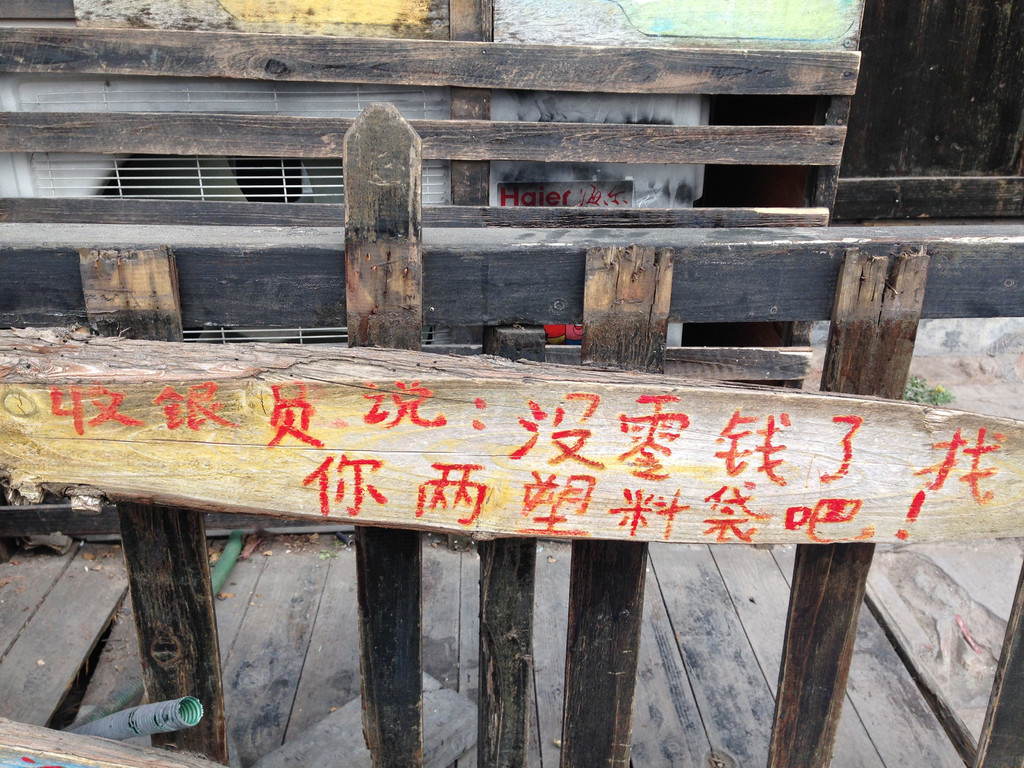 Haier 海尔
收银员说：没零钱了找
你两塑料袋吧！